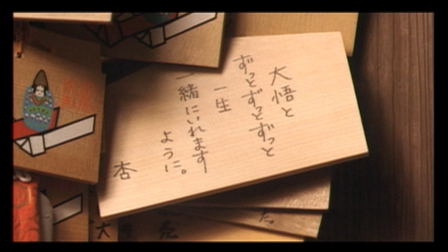 大悟と
ずっとずっとずっと
一生
一緒にいれます
ように。
杏